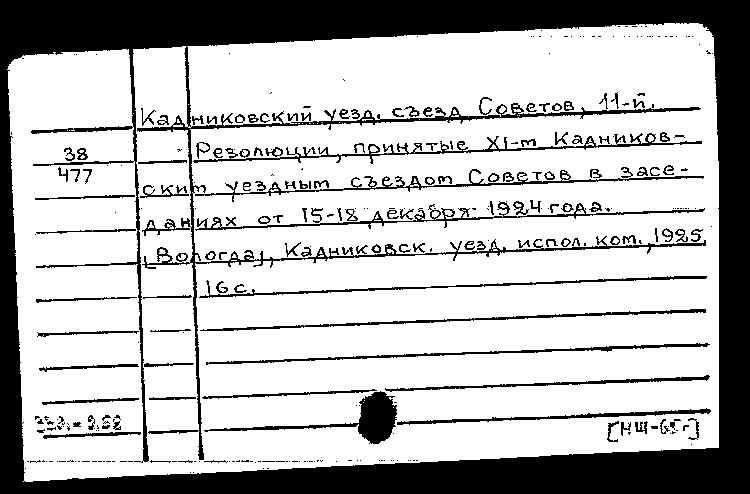 Кадниковский уезд. съезд Советов, 11-й.
38
Резолюции, принятые XI-м Кадников-
477
ским уездным съездом Советов в засе-
даниях от 15-18 декабря 1924 года.
[Вологда], Кадниковск. уезд. испол. ком., 1925
16 с.
[НШ-65г]